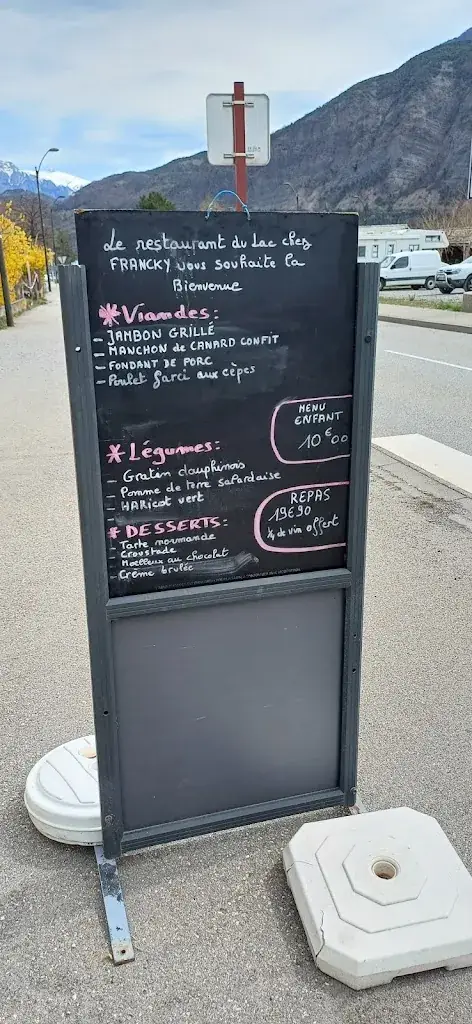 Le restaurant du Lac chez
FRANCKY vous souhaite la
Bienvenue
*Viandes:
- JAMBON GRILLÉ
- MANCHON de CANARD CONFIT
- FONDANT DE PORC
- Poulet farci aux cèpes
MENU
ENFANT
10€00
*Légumes:
- Gratin dauphinois
- Pomme de terre salardaise
- HARicot vert
REPAS
19€90
1/4 de vin offert
*DESSERTS:
- Tarte normande
- Croustade
- Moelleux au chocolat
- Crème brulée